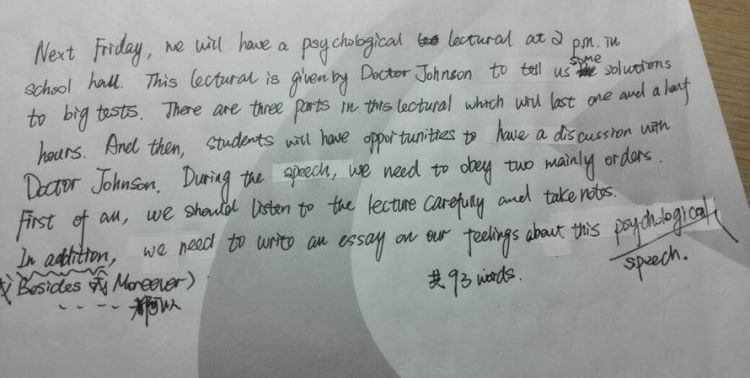 Next Friday, we will have a psychological lectural at 2 p.m. in
school hall. This lectural is given by Doctor Johnson to tell us some solutions
to big tests. There are three parts in this lectural which will last one and a half
hours. And then, students will have opportunities to have a discussion with
Doctor Johnson. During the speech, we need to obey two mainly orders.
First of all, we should listen to the lecture carefully and take notes.
In addition, we need to write an essay on our feelings about this psychological
speech.
(或 Besides 或 Moreover)
都可以
共 93 words.